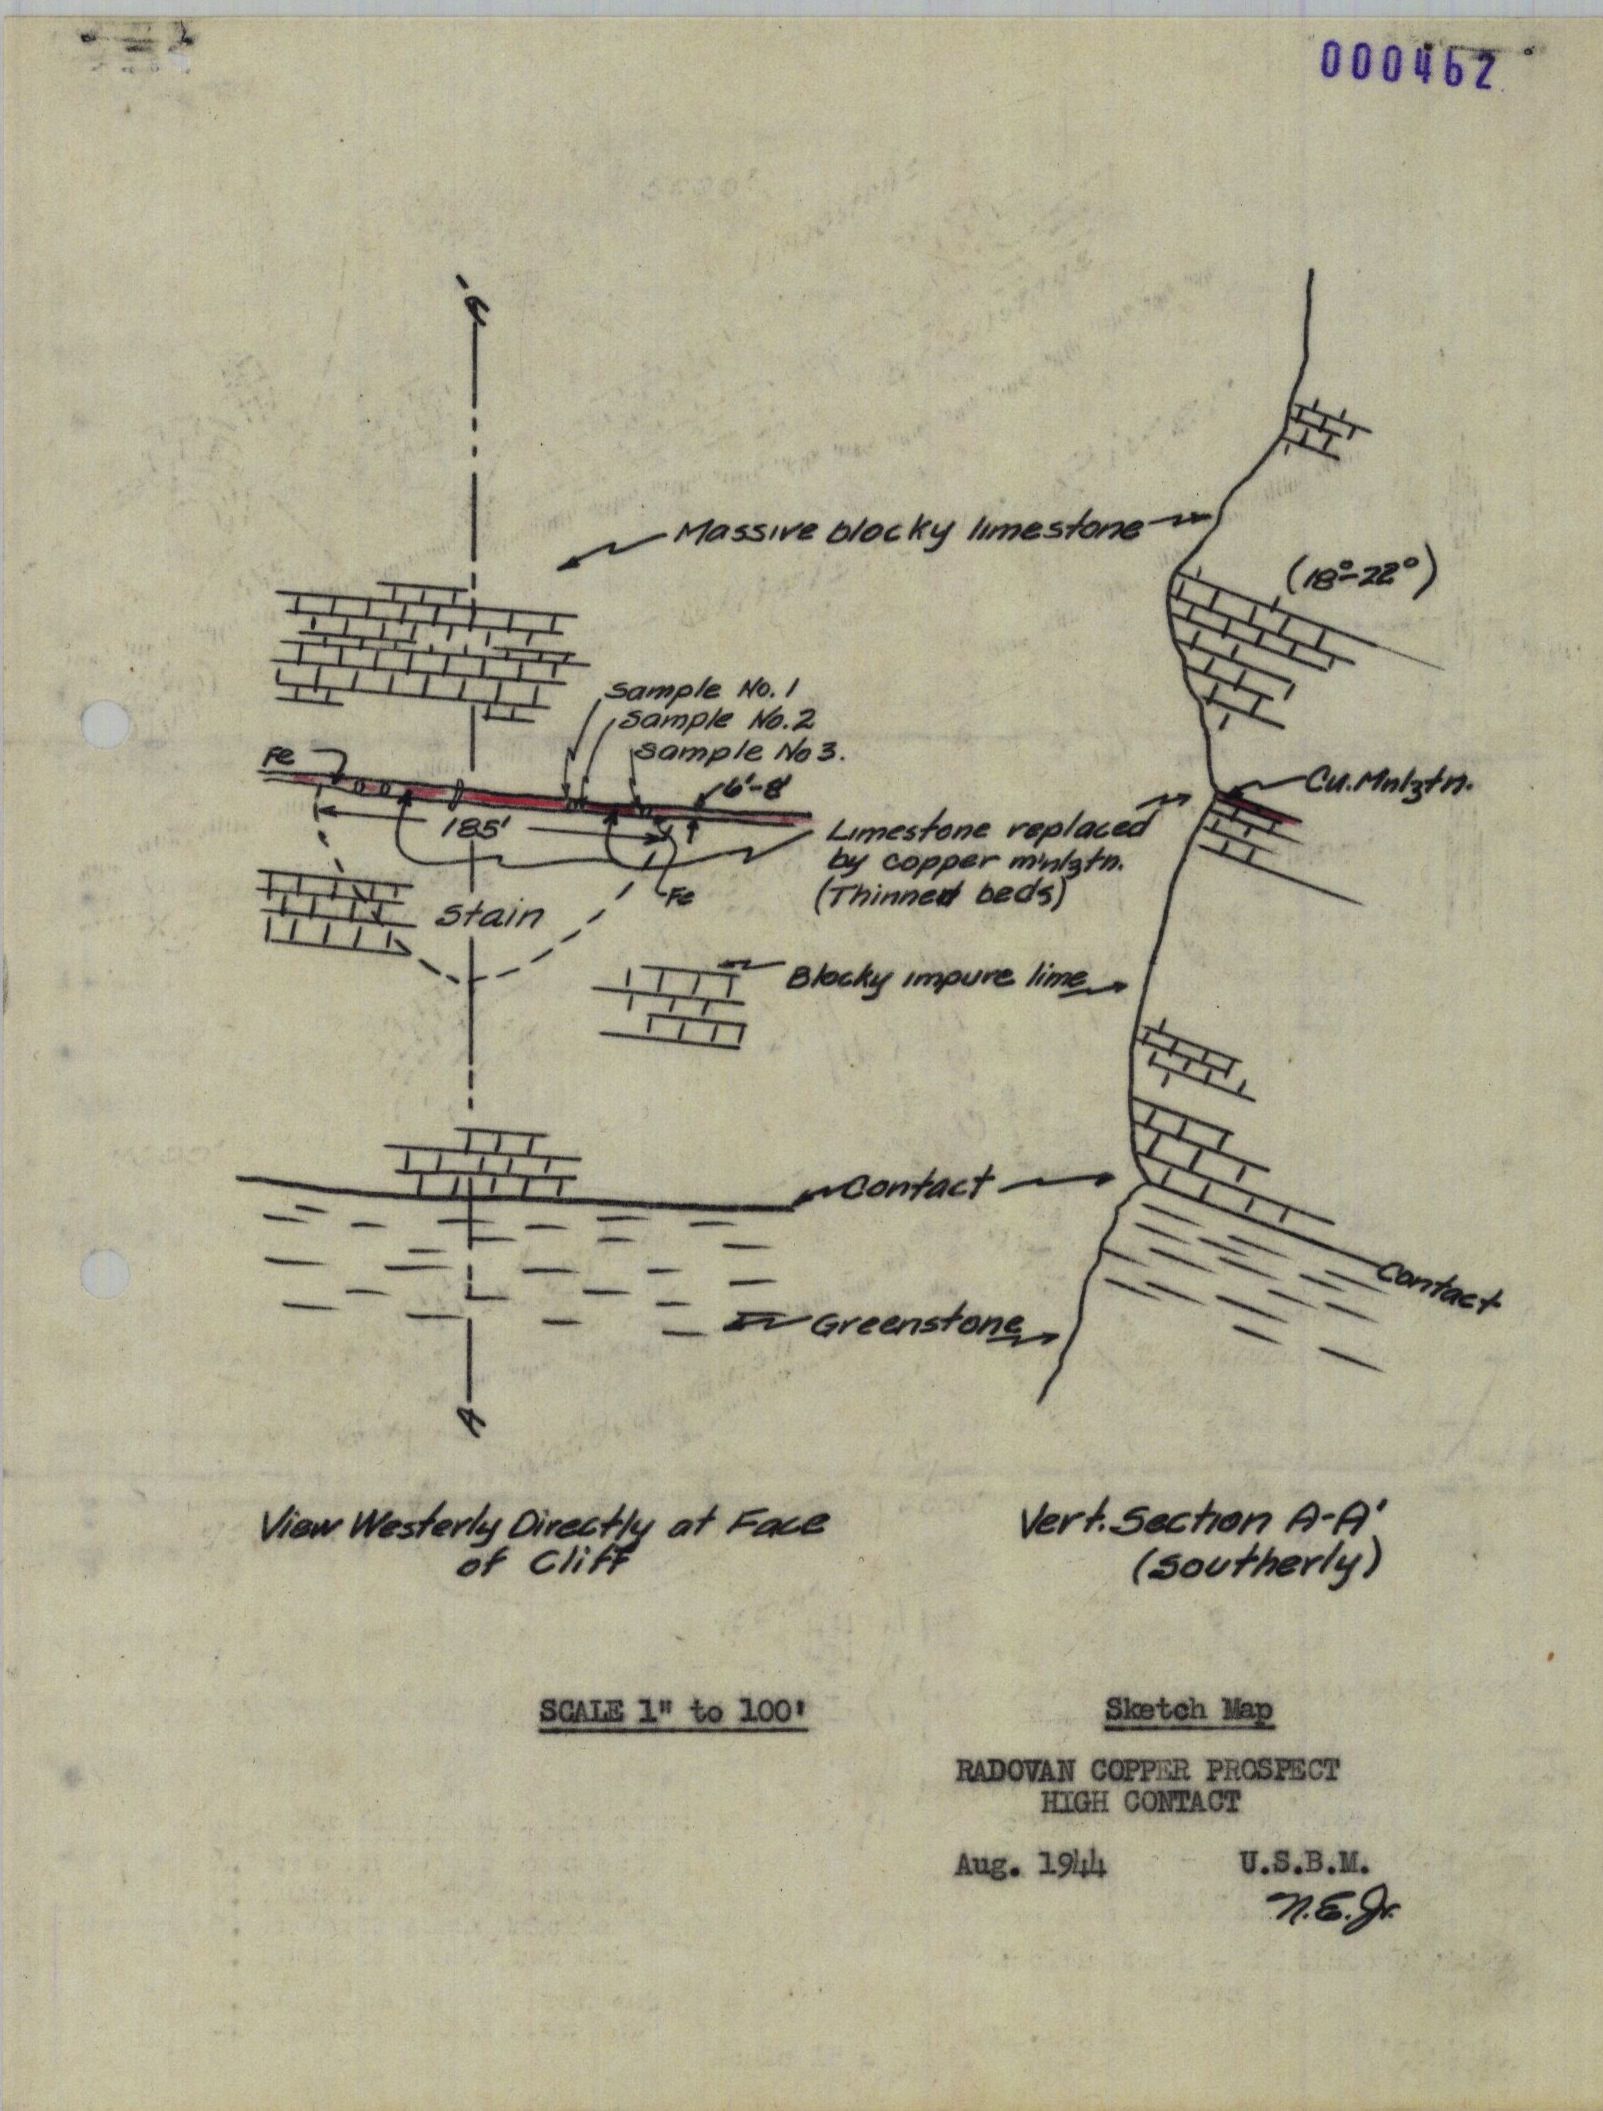 000462
A'
Massive blocky limestone
(18°-22°)
Sample No. 1
Sample No. 2
Sample No 3.
Fe
6'-8'
Cu. Mnlztn.
185'
Limestone replaced
by copper mnlztn.
(Thinned beds)
Fe
Stain
Blocky impure lime
Contact
Contact
Greenstone
A
View Westerly Directly at Face
of Cliff
Vert. Section A-A'
(southerly)
SCALE 1" to 100'
Sketch Map
RADOVAN COPPER PROSPECT
HIGH CONTACT
Aug. 1944 U.S.B.M.
N.E.Jr.